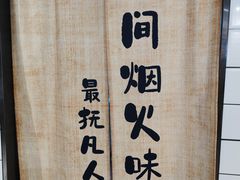 间烟火味
最抚凡人